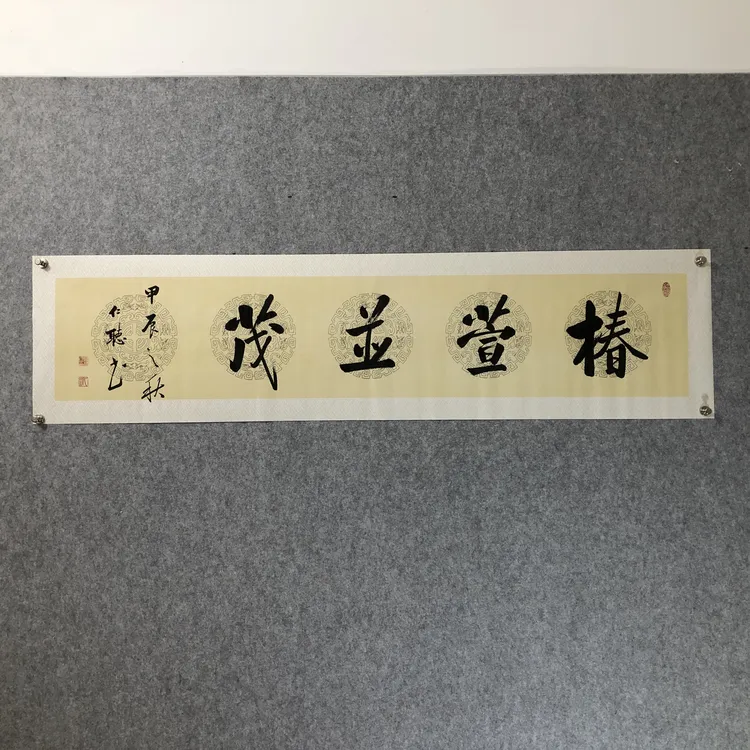 椿萱並茂
甲辰之秋
仁聪书